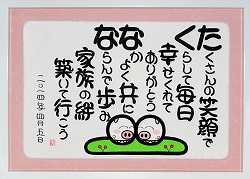 たくさんの笑顔で
くらして毎日
幸せくれて
ありがとう
なかよく共に
ならんで歩み
家族の絆
築いて行こう
二〇一四年四月五日